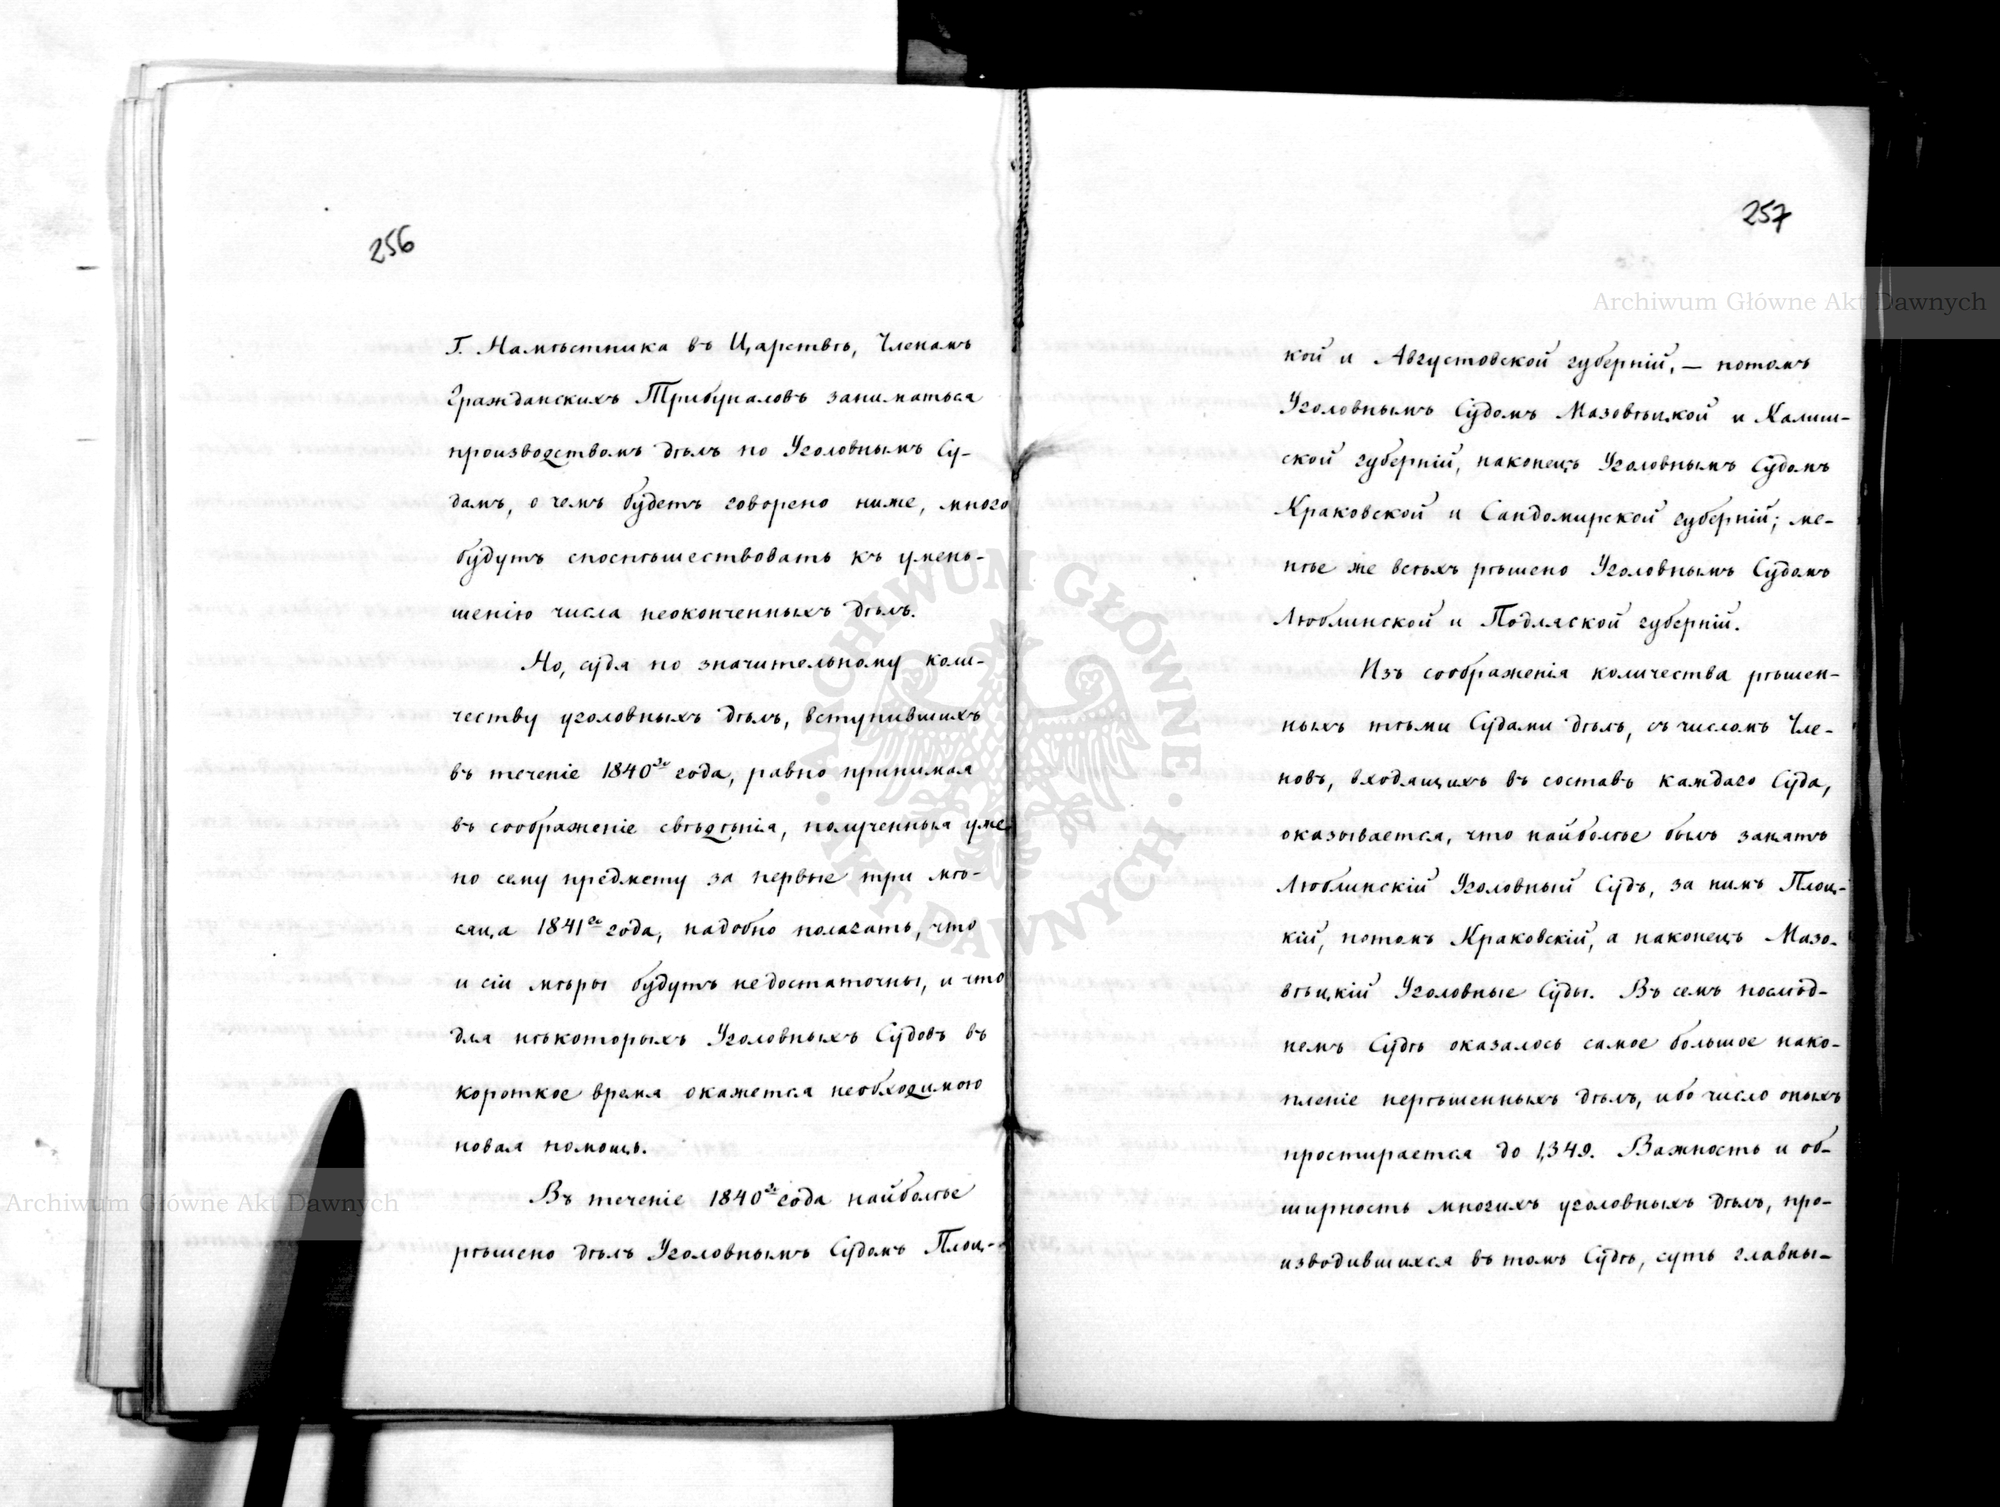 256
Г. Намѣстника въ Царствѣ, Членамъ
Гражданскихъ Трибуналовъ заниматься
производствомъ дѣлъ по Уголовнымъ Су-
дамъ, о чемъ будетъ говорено ниже, много
будутъ споспѣшествовать къ умень-
шенію числа неоконченныхъ дѣлъ.
Но, судя по значительному коли-
честву уголовныхъ дѣлъ, вступившихъ
въ теченіе 1840го года, равно принимая
въ соображеніе свѣдѣнія, полученныя уже
по сему предмету за первые три мѣ-
сяца 1841го года, надобно полагать, что
и сіи мѣры будутъ недостаточны, и что
для нѣкоторыхъ Уголовныхъ Судовъ въ
короткое время окажется необходимою
новая помощь.
Въ теченіе 1840го года наиболѣе
рѣшено дѣлъ Уголовнымъ Судомъ Плоц-
257
кой и Августовской губерній, — потомъ
Уголовнымъ Судомъ Мазовѣцкой и Калиш-
ской губерній, наконецъ Уголовнымъ Судомъ
Краковской и Сандомирской губерній; ме-
нѣе же всѣхъ рѣшено Уголовнымъ Судомъ
Люблинской и Подляской губерній.
Изъ соображенія количества рѣшен-
ныхъ тѣми Судами дѣлъ, съ числомъ Чле-
новъ, входящихъ въ составъ каждаго Суда,
оказывается, что наиболѣе былъ занятъ
Люблинскій Уголовный Судъ, за нимъ Плоц-
кій, потомъ Краковскій, а наконецъ Мазо-
вѣцкій Уголовные Суды. Въ семъ послѣд-
немъ Судѣ оказалось самое большое нако-
пленіе нерѣшенныхъ дѣлъ, ибо число оныхъ
простирается до 1,349. Важность и об-
ширность многихъ уголовныхъ дѣлъ, про-
изводившихся въ томъ Судѣ, суть главны-
Archiwum Główne Akt Dawnych
Archiwum Główne Akt Dawnych
ARCHIWUM GŁÓWNE
AKT DAWNYCH